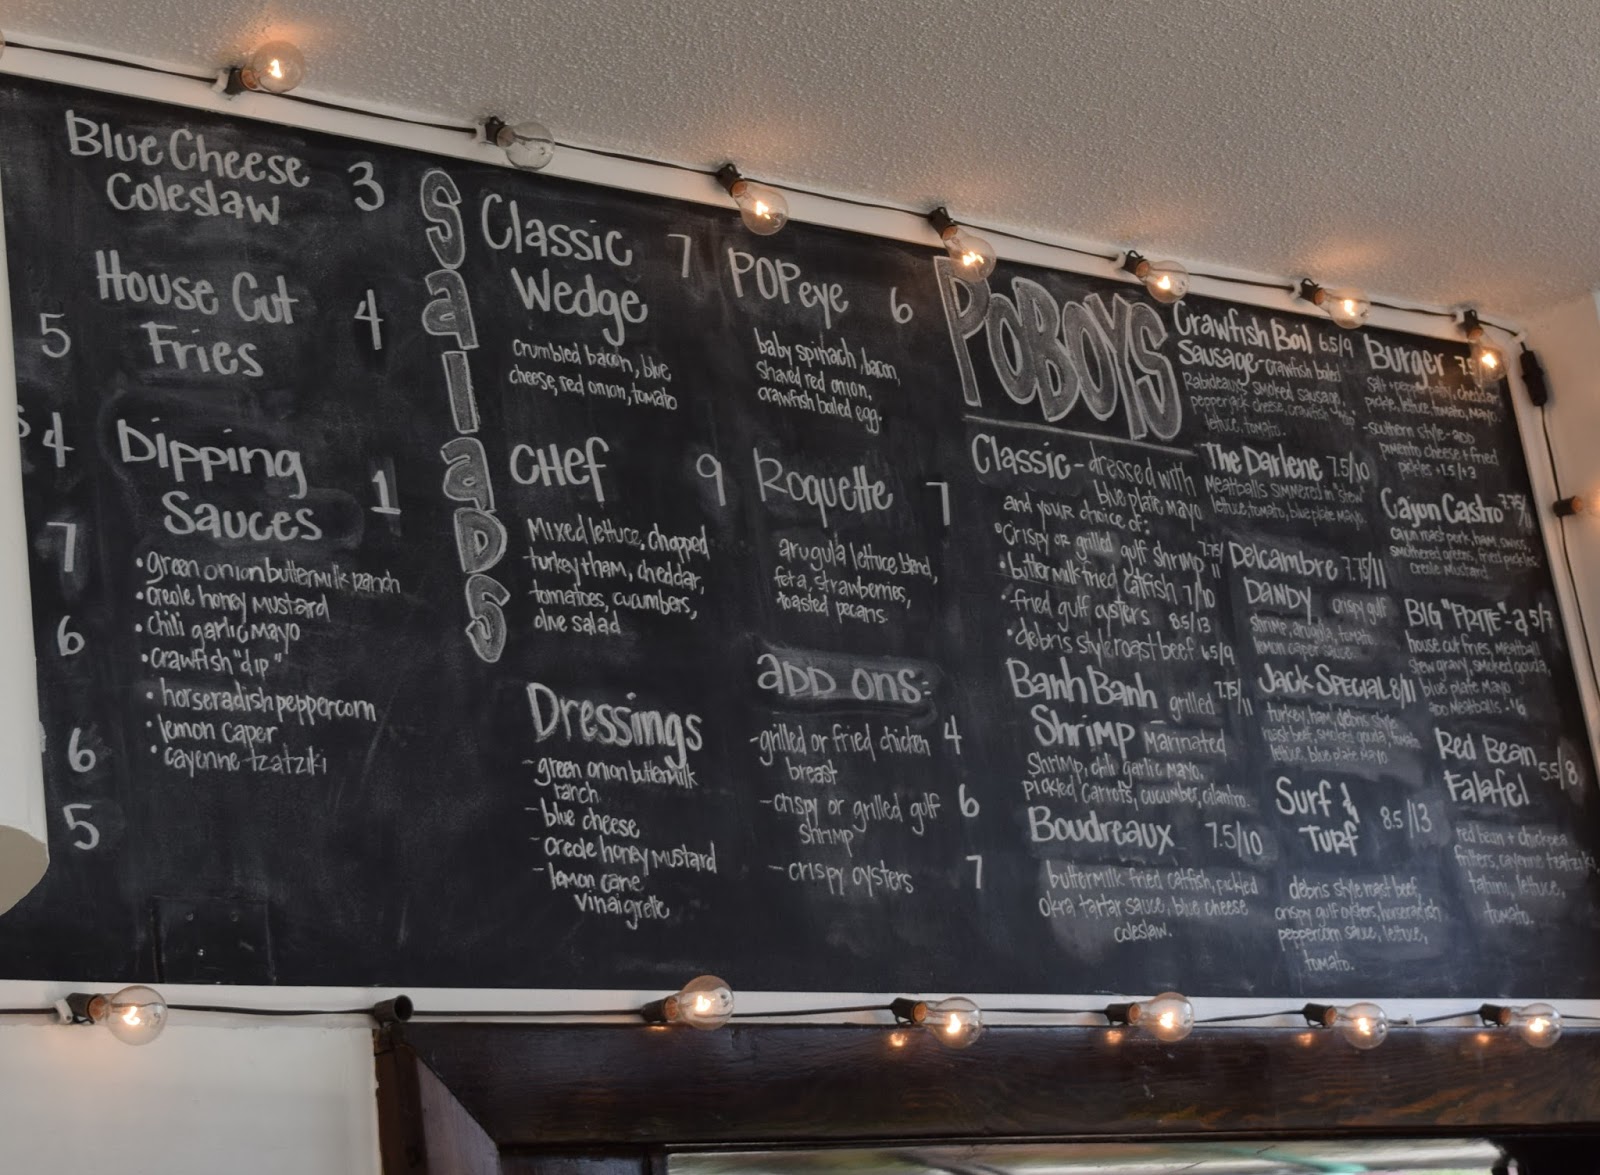 5
$4
7
6
6
5
Blue Cheese
Coleslaw 3
House Cut
Fries 4
Dipping
Sauces 1
• green onion buttermilk ranch
• creole honey mustard
• chili garlic mayo
• crawfish "dip"
• horseradish peppercorn
• lemon caper
• cayenne tzatziki
SalaDS
Classic
Wedge 7
crumbled bacon, blue
cheese, red onion, tomato
CHef 9
Mixed lettuce, chopped
turkey + ham, cheddar,
tomatoes, cucumbers,
olive salad
Dressings
- green onion buttermilk
ranch
- blue cheese
- creole honey mustard
- lemon cane
vinaigrette
POPeye 6
baby spinach, bacon,
shaved red onion,
crawfish boiled egg.
Roquette 7
arugula lettuce blend,
feta, strawberries,
toasted pecans
aDD ons:
- grilled or fried chicken 4
breast
- crispy or grilled gulf 6
shrimp
- crispy oysters 7
POBOYS
Classic - dressed with
blue plate mayo
and your choice of:
• crispy or grilled gulf shrimp 7.75/11
• buttermilk fried catfish 7/10
• fried gulf oysters 8.5/13
• debris style roast beef 6.5/9
Banh Banh
Shrimp grilled 7.75/11
Marinated
Shrimp, chili garlic mayo,
pickled carrots, cucumber, cilantro.
Boudreaux 7.5/10
buttermilk fried catfish, pickled
okra tartar sauce, blue cheese
coleslaw.
Crawfish Boil 6.5/9
Sausage - crawfish boiled
Rabideaux smoked sausage,
pepperjack cheese, crawfish "dip"
lettuce, tomato.
The Darlene 7.5/10
Meatballs simmered in "stew"
lettuce, tomato, blue plate mayo.
Delcambre 7.75/11
DANDY crispy gulf
shrimp, arugula, tomato,
lemon caper sauce.
Jack Special 8/11
turkey, ham, debris style
roast beef, smoked gouda, tomato
lettuce, blue plate mayo
Surf &
TURF 8.5/13
debris style roast beef,
crispy gulf oysters, horseradish
peppercorn sauce, lettuce,
tomato.
Burger
salt + pepper patty, cheddar,
pickle, lettuce, tomato, mayo.
- southern style - add
pimento cheese + fried
pickles +1.5/+3
Cajun Castro 7.75/11
cajun roast pork, ham, swiss,
smothered greens, fried pickles,
creole mustard.
BIG "FRITE"-a 5/7
house cut fries, meatball
stew gravy, smoked gouda,
blue plate mayo
Red Bean
Falafel 5.5/8
red bean + chickpea
fritters, cayenne tzatziki,
tahini, lettuce,
tomato.